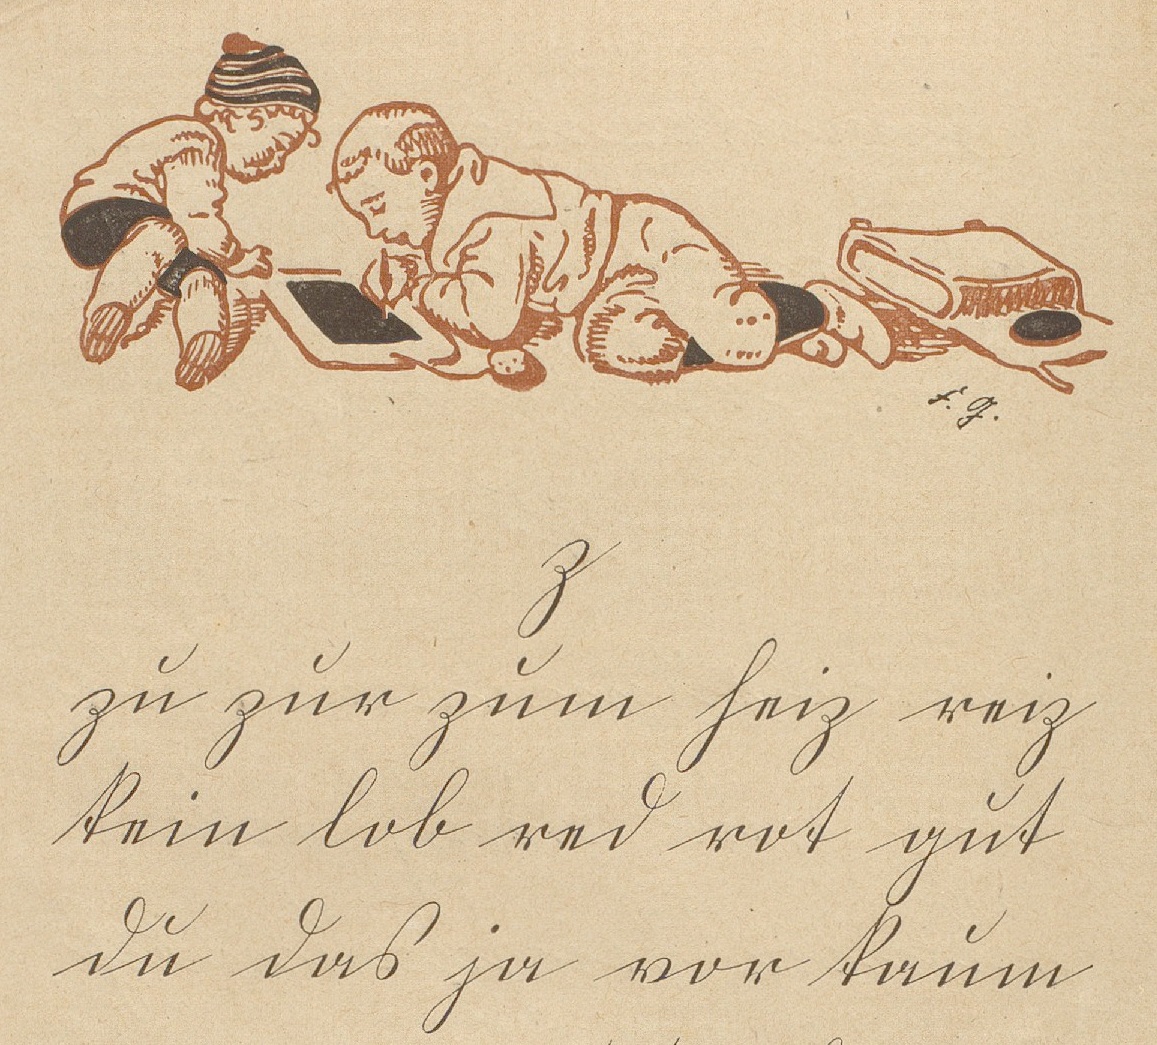 F. G.
z
zu zur zum heiz reiz
kein lob red rot gut
du das ja vor kaum